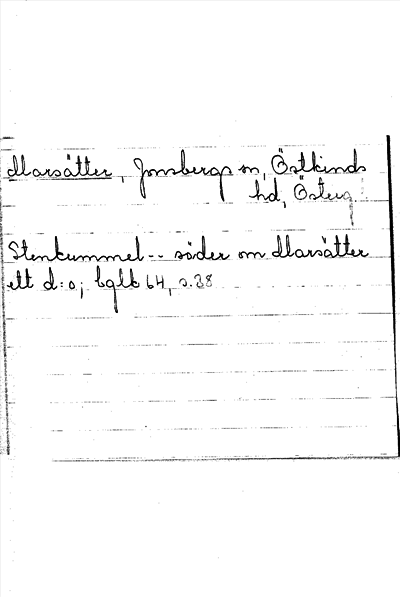 Marsätter, Jonsbergs sn, Östkinds
hd, Österg
Stenkummel -- söder om Marsätter
ett d:o; bglb 64, s.38